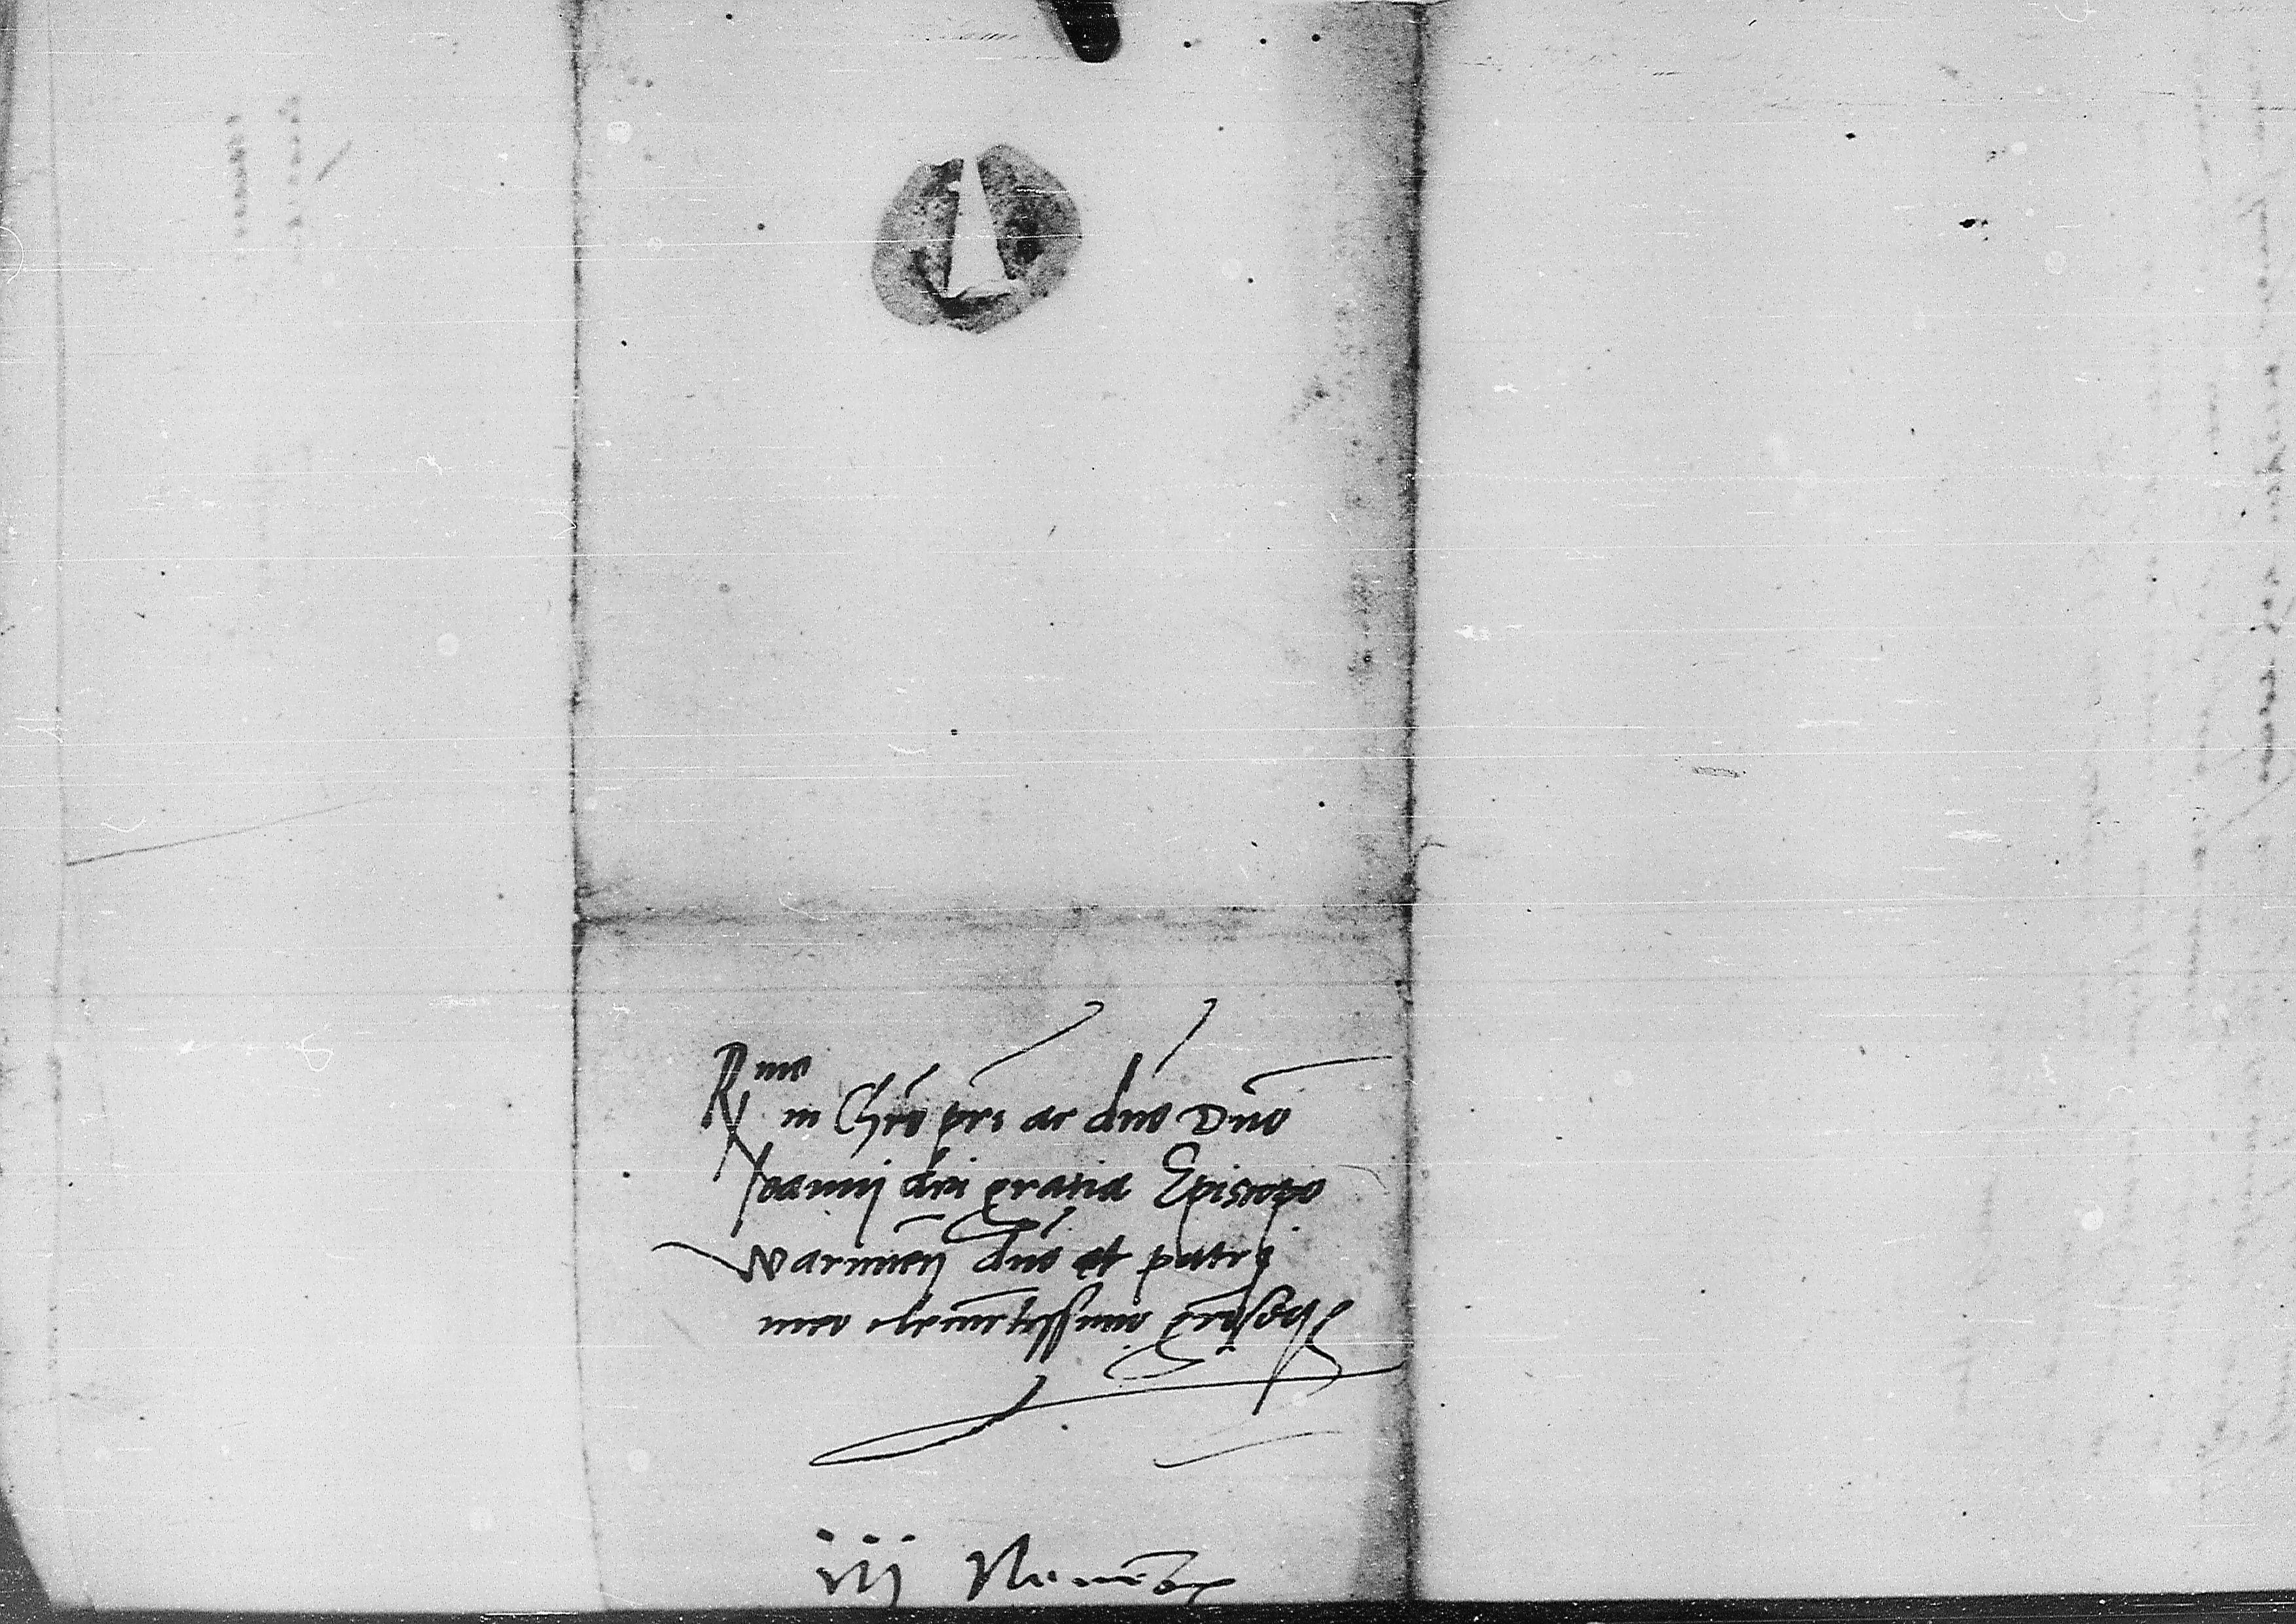 Rmo in Chro pri ac dno Dno
Joanni dei gratia Episcopo
Warmien dno et patri
meo clementissimo
iij Nouemb